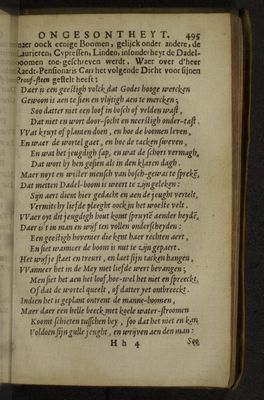 ONGESONTHEYT. 495
maer oock eenige Boomen, gelijck onder andere, de
Laurieren, Cypressen, Linden, insonderheyt de Dadel-
boomen toe-geschreven werdt. Waer over d'heer
Raedt-Pensionaris Cats het volgende Dicht voor sijnen
Proef-steen gestelt heeft:
Daer is een geestigh volck dat Godes hooge wercken
Gewoon is aen te sien en vlijtigh aen te mercken;
Soo datter niet een loof in bosch of velden wast,
Dat niet en wort door-socht en neerstigh onder-tast.
Wat kruyt of planten doen, en hoe de boomen leven,
En waer de wortel gaet, en hoe de tacken sweven,
En wat het jeughdigh sap, en wat de schors vermagh,
Dat wort by hen gesien als in den klaren dagh.
Maer noyt en wister mensch van bosch-gewas te spreken,
Dat metten Dadel-boom is weert te zijn geleken:
Sijn aert dient hier gedacht en aen de jeught vertelt,
Vermits hy liefde pleeght oock in het woeste velt.
Waer oyt dit jeughdigh hout komt spruyte aender heyde,
Daer is't in man en wijf ten vollen onderscheyden:
Een geestigh hovenier die kent haer rechten aert,
En siet wanneer de boom is nut te zijn gepaert.
Het wijfje staet en treurt, en laet sijn tacken hangen,
Wanneer het in de Mey met liefde wert bevangen;
Men siet het aen het loof, hoe-wel het niet en spreeckt,
Of dat de wortel queelt, of datter yet ontbreeckt.
Indien het is geplant ontrent de manne-boomen,
Maer daer een helle beeck met koele water-stroomen
Koomt schieten tusschen bey, soo dat het niet en kan
Voldoen sijn gulle jeught, en wrijven aen den man:
H h 4